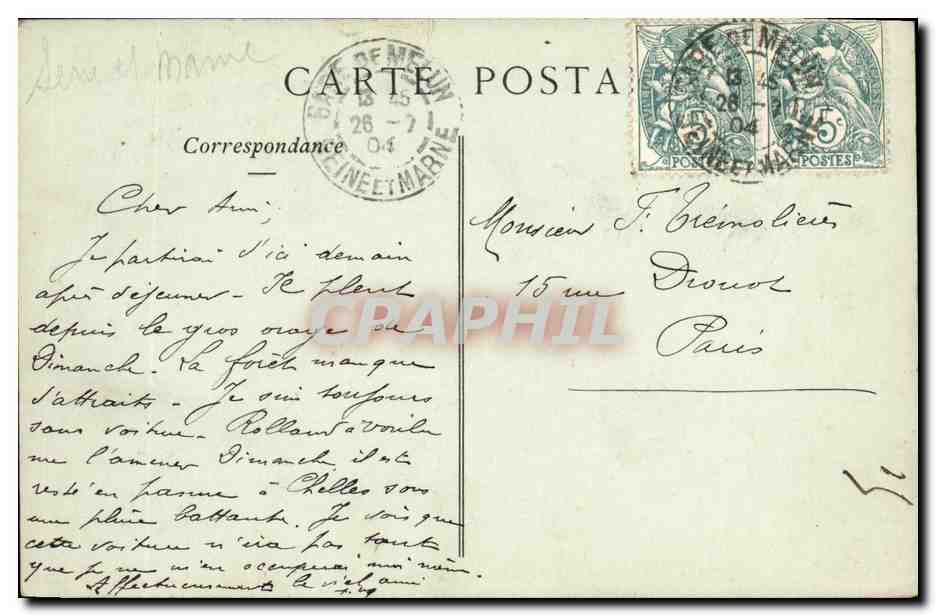 Seine et Marne
CARTE POSTA
Correspondance
GARE DE MELUN
13 45
26 - 7
04
SEINE ET MARNE
GARE DE MELUN
13 45
26 - 7
04
SEINE ET MARNE
5c
POSTES
5c
POSTES
Cher Ami,
Je partirai d'ici demain
après déjeuner - Il pleut
depuis le gros orage de
Dimanche. La forêt manque
d'attraits - Je suis toujours
sans voiture - Rolland a voulu
me l'amener Dimanche il est
resté en panne à Chelles sous
une pluie battante. Je vois que
cette voiture n'ira pas tant
que je ne m'en occuperai moi même.
Affectueusement le vieil ami
Monsieur F. Trémolières
15 rue Drouot
Paris
CPAPHIL